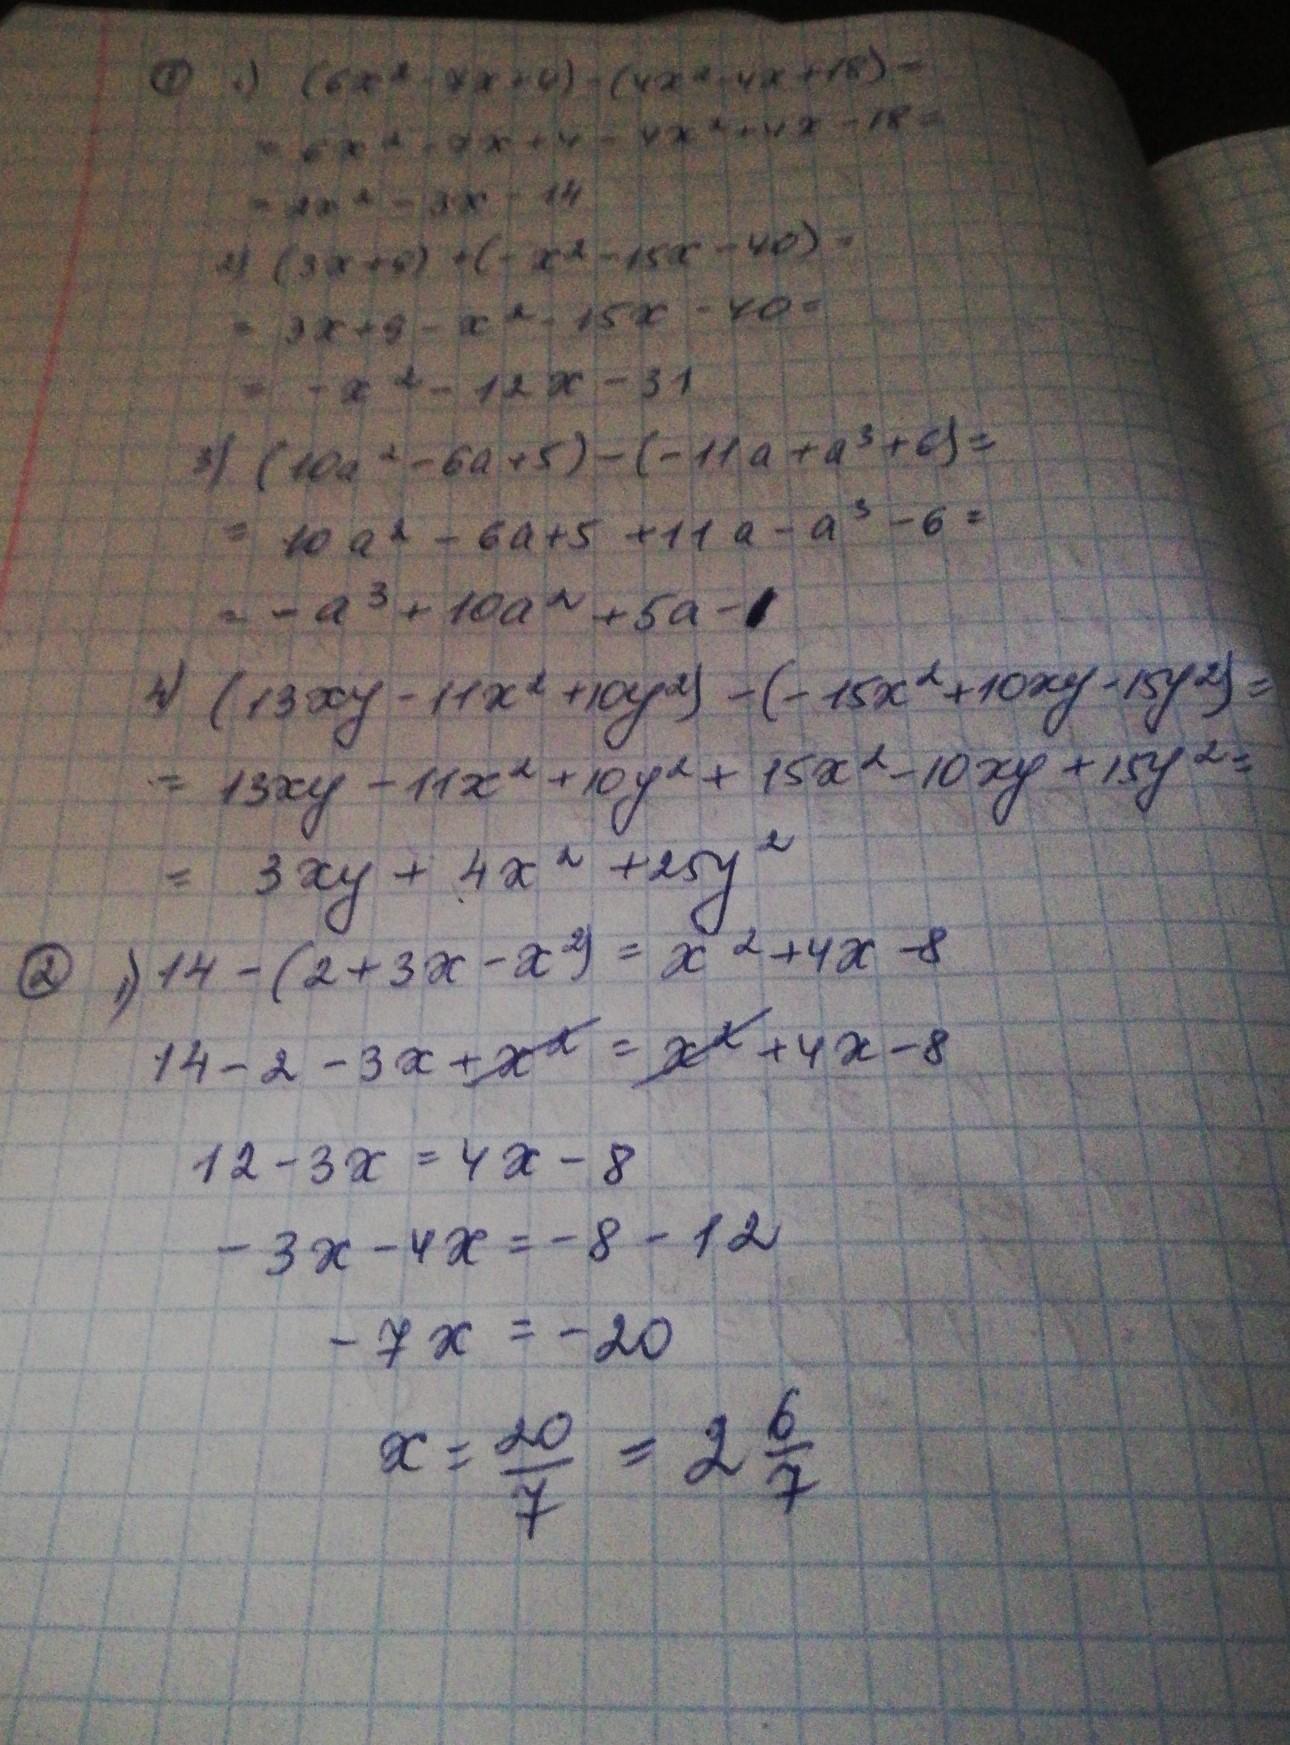 ① 1) (6x² - 7x + 4) - (4x² - 4x + 18) =
= 6x² - 7x + 4 - 4x² + 4x - 18 =
= 2x² - 3x - 14
2) (3x + 9) + (- x² - 15x - 40) =
= 3x + 9 - x² - 15x - 40 =
= - x² - 12x - 31
3) (10a² - 6a + 5) - (-11a + a³ + 6) =
= 10a² - 6a + 5 + 11a - a³ - 6 =
= - a³ + 10a² + 5a - 1
4) (13xy - 11x² + 10y²) - (- 15x² + 10xy - 15y²) =
= 13xy - 11x² + 10y² + 15x² - 10xy + 15y² =
= 3xy + 4x² + 25y²
② 1) 14 - (2 + 3x - x²) = x² + 4x - 8
14 - 2 - 3x + x² = x² + 4x - 8
12 - 3x = 4x - 8
- 3x - 4x = - 8 - 12
- 7x = - 20
x = 20/7 = 2 6/7